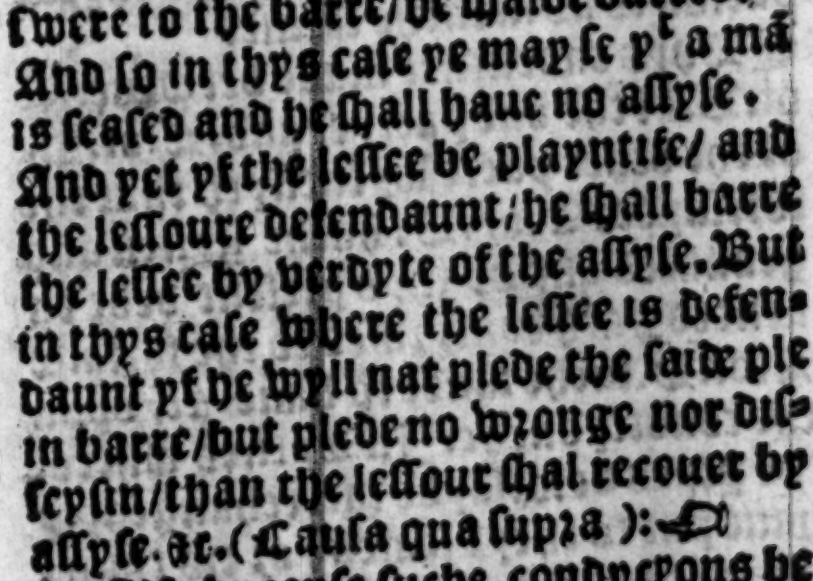 swere to the barre/he
And so in thys case ye may se yᵗ a mā
is seased and he shall haue no assyse.
And yet yf the lessee be playntife/ and
the lessoure defendaunt/he shall barre
the lessee by verdyte of the assyse. But
in thys case where the lessee is defen-
daunt yf he wyll nat plede the saide ple
in barre/but plede no wronge nor dis-
seysin/than the lessour shal recouer by
assyse. &c. ( Causa qua supra ):
suche condycyons be